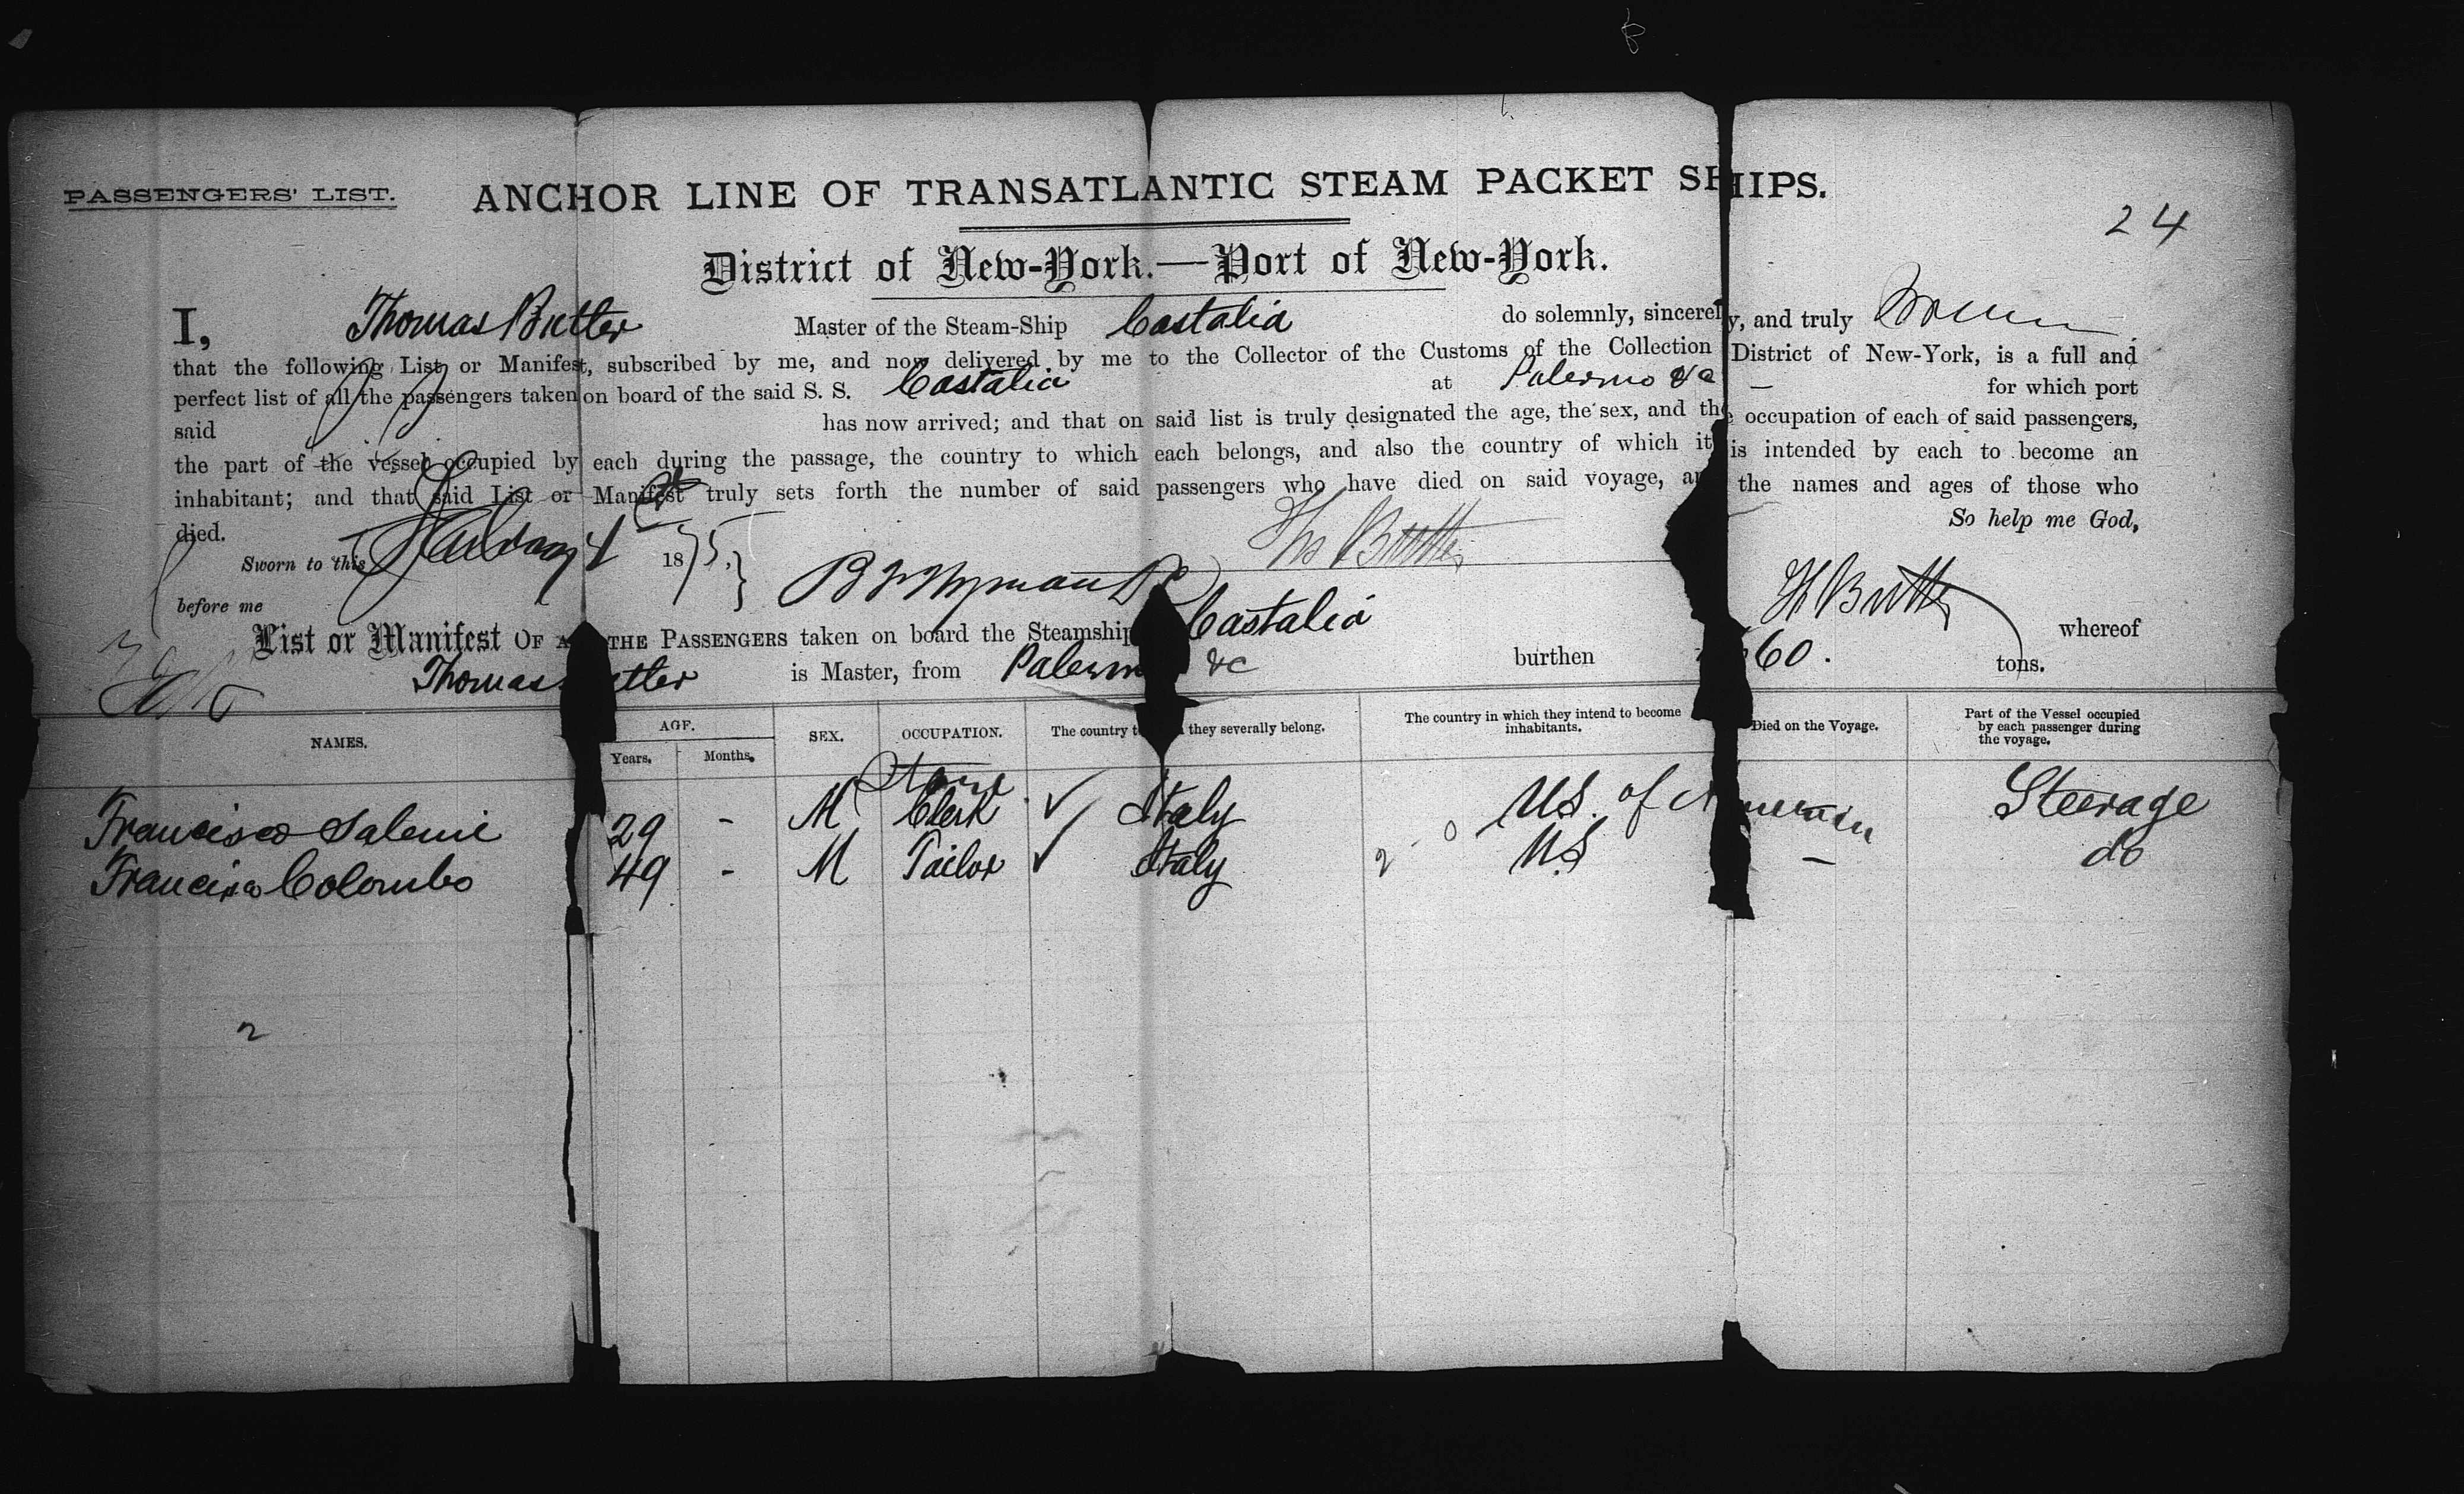 PASSENGERS' LIST.
ANCHOR LINE OF TRANSATLANTIC STEAM PACKET SHIPS.
24
District of New-York.—Port of New-York.
I, Thomas Butler Master of the Steam-Ship Castalia do solemnly, sincerely, and truly
that the following List or Manifest, subscribed by me, and now delivered by me to the Collector of the Customs of the Collection District of New-York, is a full and
perfect list of all the passengers taken on board of the said S. S. Castalia at Palermo &c — for which port
said has now arrived; and that on said list is truly designated the age, the sex, and the occupation of each of said passengers,
the part of the vessel occupied by each during the passage, the country to which each belongs, and also the country of which it is intended by each to become an
inhabitant; and that said List or Manifest truly sets forth the number of said passengers who have died on said voyage, and the names and ages of those who
died. So help me God,
Sworn to this 4 1875, } Ths Butler
before me Th Butler
List or Manifest OF ALL THE PASSENGERS taken on board the Steamship Castalia whereof
Thomas Butler is Master, from Palermo &c burthen 60. tons.
NAMES. AGE. Years. Months. SEX. OCCUPATION. The country to which they severally belong. The country in which they intend to become inhabitants. Died on the Voyage. Part of the Vessel occupied by each passenger during the voyage.
Store
Francisco Salemi 29 - M Clerk ✓ Italy U.S. of America — Steerage
Francisco Colombo 49 - M Tailor ✓ Italy 2 - 0 U.S — do
2